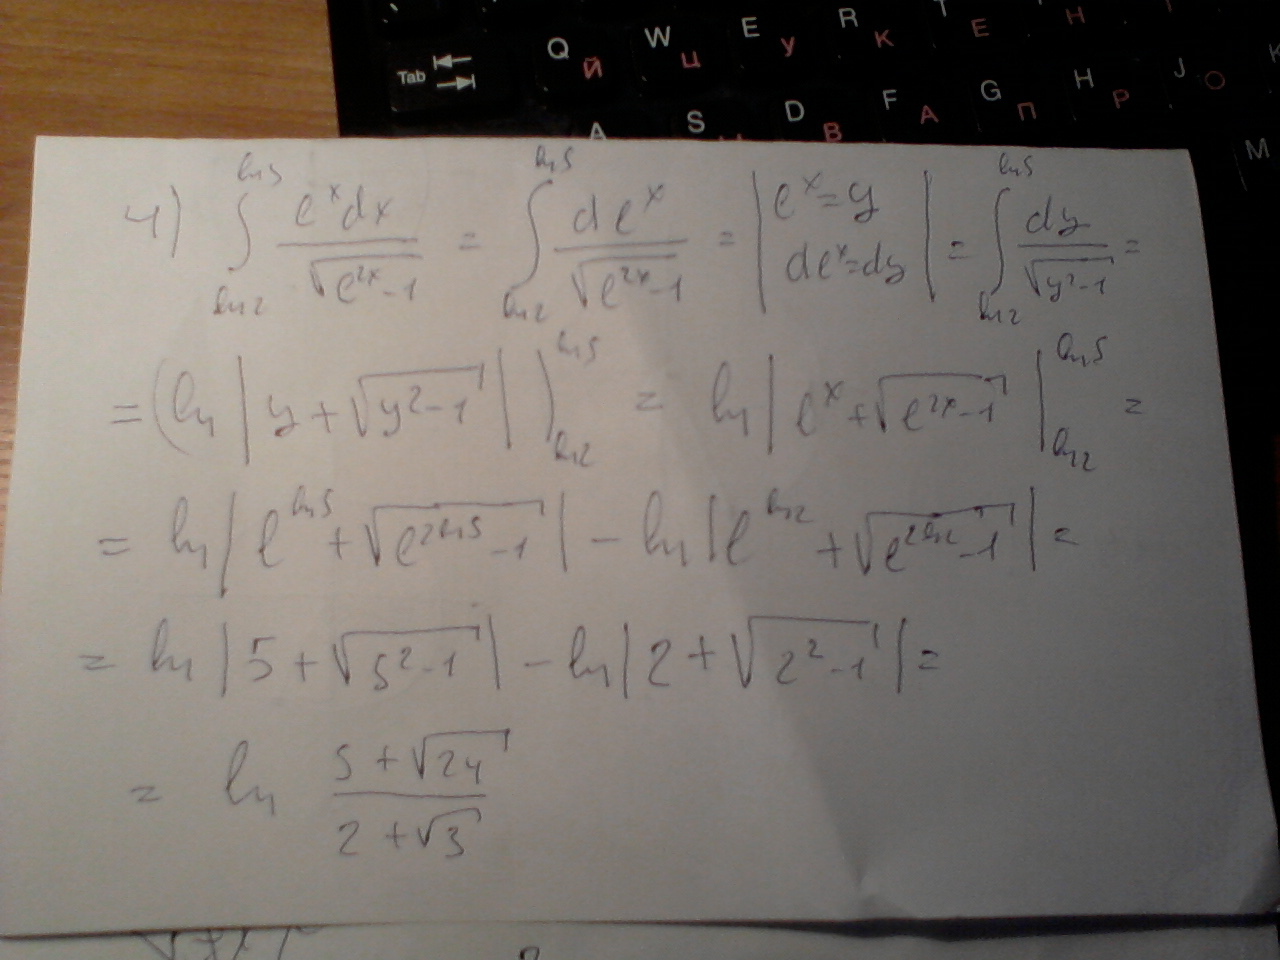 Q Й W Ц E У R К T Е Н
Tab
A S D В F А G П H Р J О K
M
4) ∫_{ln2}^{ln5} e^x dx / √(e^{2x}-1) = ∫_{ln2}^{ln5} de^x / √(e^{2x}-1) = | e^x=y de^x=dy | = ∫_{ln2}^{ln5} dy / √(y²-1) =
= (ln | y + √(y²-1) |)_{ln2}^{ln5} = ln | e^x + √(e^{2x}-1) |_{ln2}^{ln5} =
= ln | e^{ln5} + √(e^{2ln5}-1) | - ln | e^{ln2} + √(e^{2ln2}-1) | =
= ln | 5 + √(5²-1) | - ln | 2 + √(2²-1) | =
= ln (5 + √24) / (2 + √3)